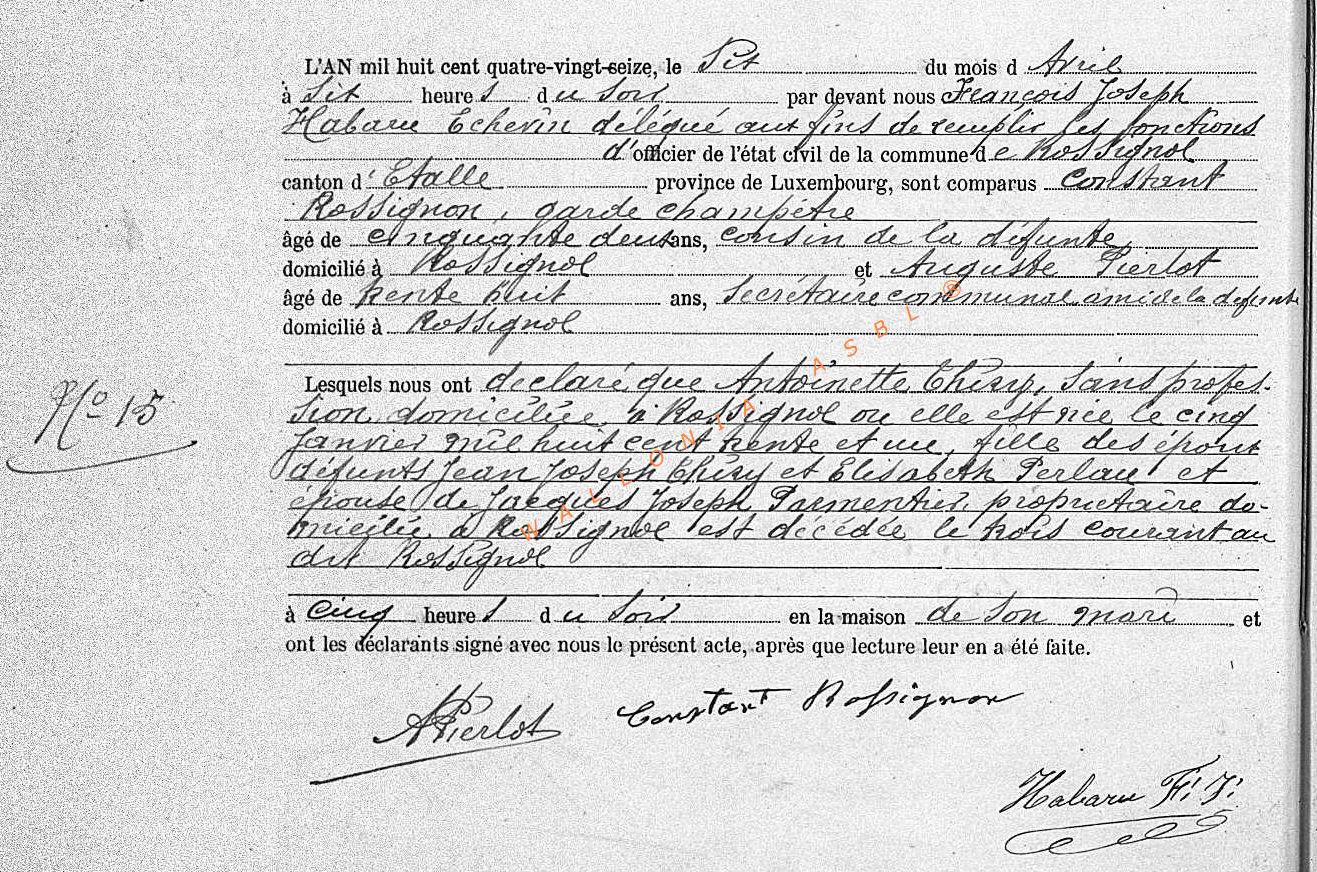 L'AN mil huit cent quatre-vingt-seize, le Six du mois d Avril
à Six heure s d u Soir par devant nous François Joseph
Habaru Echevin délégué aux fins de remplir les fonctions
d'officier de l'état civil de la commune d e Rossignol
canton d' Etalle province de Luxembourg, sont comparus Constant
Rossignon, garde champêtre
âgé de cinquante deux ans, cousin de la défunte,
domicilié à Rossignol et Auguste Pierlot
âgé de trente huit ans, Secrétaire communal ami de la defunte
domicilié à Rossignol
Lesquels nous ont declaré que Antoinette Thiry, Sans profes-
sion domiciliée à Rossignol ou elle est née le cinq
Janvier mil huit cent trente et un, fille des époux
défunts Jean Joseph Thiry et Elisabeth Perlau et
épouse de Jacques Joseph Parmentier, propriétaire do-
micilié à Rossignol est décédée le trois courant au
dit Rossignol
à Cinq heure s d u Soir en la maison de Son mari et
ont les déclarants signé avec nous le présent acte, après que lecture leur en a été faite.
N° 15
APierlot
Constant Rossignon
Habaru F. J.
WALLONIA ASBL ®